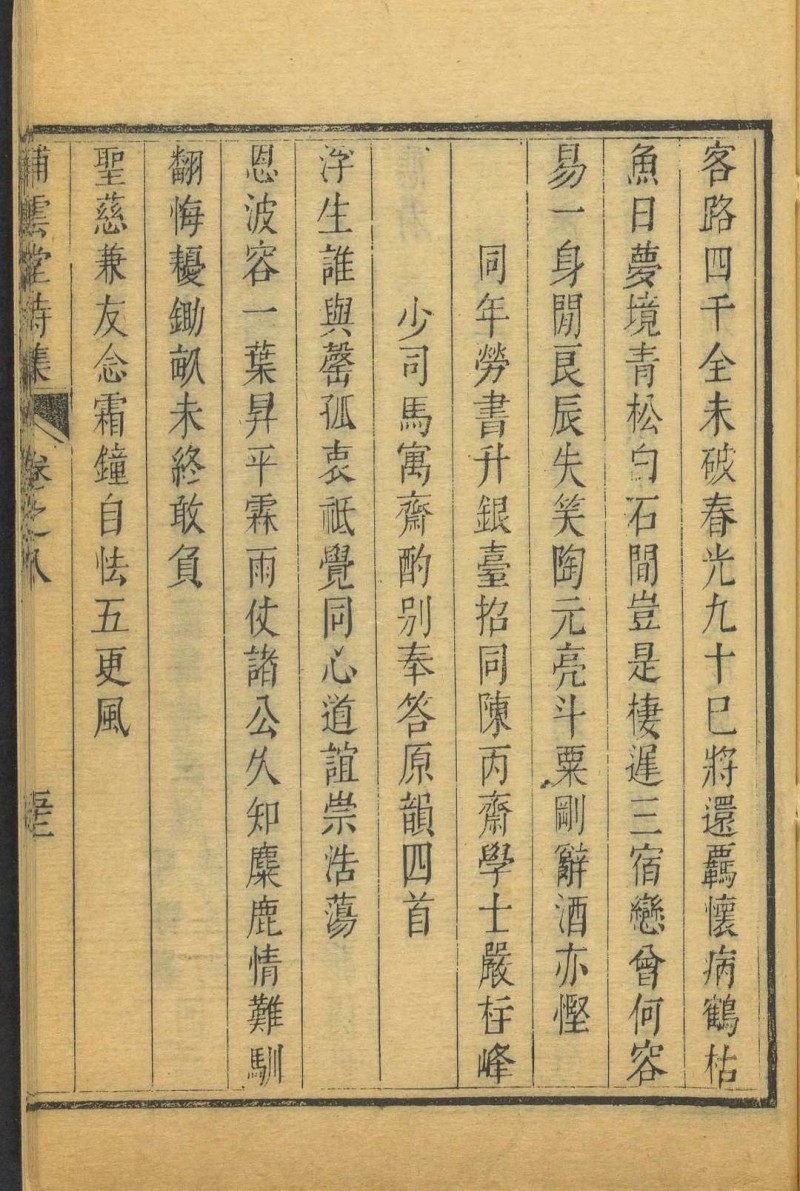 客路四千全未破春光九十巳將還羈懷病鶴枯
魚日夢境青松白石間豈是棲遲三宿戀曾何容
易一身閒良辰失笑陶元亮斗粟剛辭酒亦慳
同年勞書升銀臺招同陳丙齋學士嚴㭐峰
少司馬寓齋酌别奉答原韻四首
浮生誰與罄孤衷祗覺同心道誼崇浩蕩
恩波容一葉昇平霖雨仗諸公久知麋鹿情難馴
翻悔耰鋤畝未終敢負
聖慈兼友念霜鐘自怯五更風
補雲堂詩集 卷之八